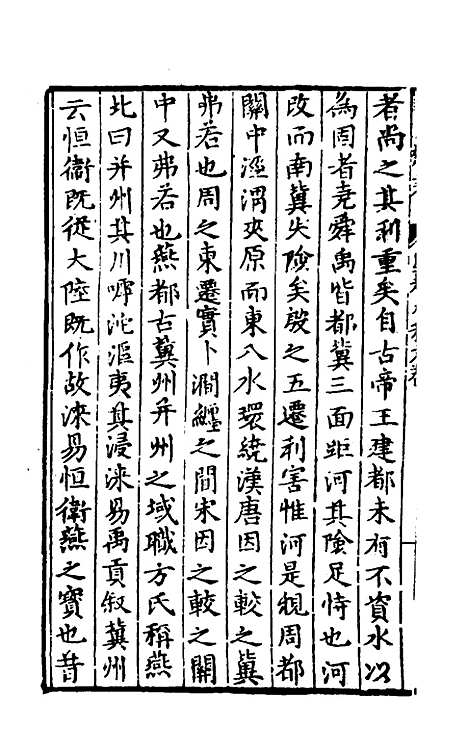 者尚之其利重矣自古帝王建都未有不資水以
為固者堯舜禹皆都冀三面距河其險足恃也河
改而南冀失險矣殷之五遷利害惟河是視周都
關中涇渭夾原而東八水環繞漢唐因之較之冀
弗若也周之東遷實卜澗纏之間宋因之較之關
中又弗若也燕都古冀州并州之域職方氏稱燕
北曰并州其川嘑沱漚夷其浸淶易禹貢叙冀州
云恒衞既從大陸既作故淶易恒衛燕之寶也昔